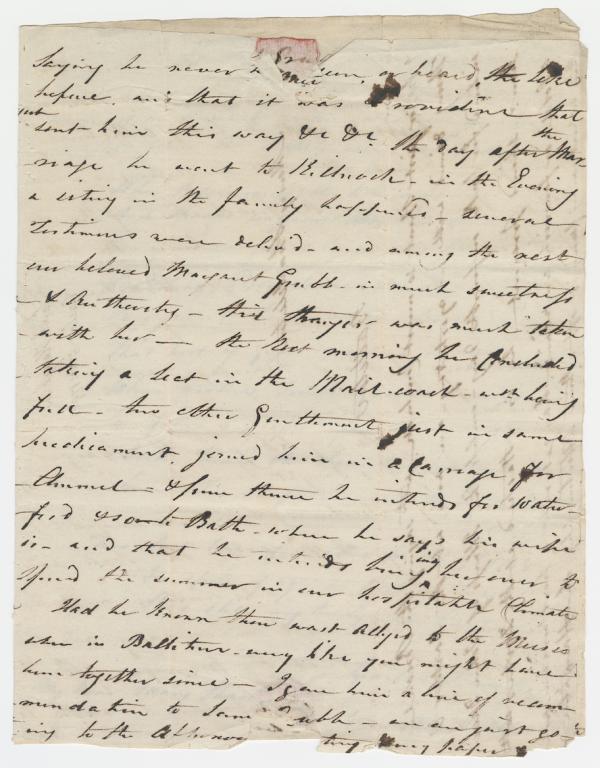 saying he never seen, or heard, the like
before, and that it was Providence that
just
sent him this way &c &c. the day after the Mar-
riage he went to Kilnock - in the Evening
a sitting in the family happened - several
Testimonies were deliv'd - and among the rest
our beloved Margaret Grubb - in much sweetness
& Authority - this stranger was much taken
with her - the Next morning he concluded
taking a seat in the Mail-coach - wch being
full - two other Gentlemen just in same
predicament, joined him in a Carriage for
Clonmel - & from thence he intends for Water-
ford & so to Bath - where he says his wife
is - and that he intends bringing her over to
spend the summer in our hospitable Climate
Had he known thou wast allyed to the
when in Ballitore - very like you might have
been together since - I gave him a line of recom-
mendation to Saml Grubb - we are just go-
ing to the my paper